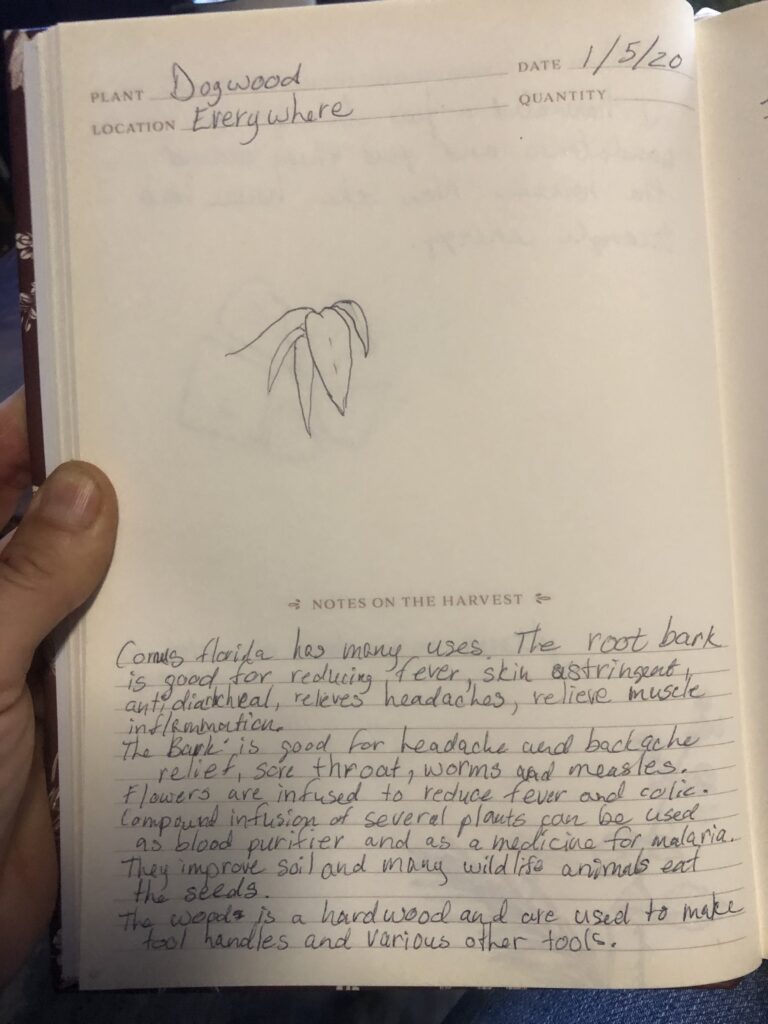 PLANT Dogwood DATE 1/5/20
LOCATION Everywhere QUANTITY
NOTES ON THE HARVEST
Cornus florida has many uses. The root bark
is good for reducing fever, skin astringent,
antidiarrheal, relieves headaches, relieve muscle
inflammation.
The Bark is good for headache and backache
relief, sore throat, worms and measles.
Flowers are infused to reduce fever and colic.
Compound infusion of several plants can be used
as blood purifier and as a medicine for malaria.
They improve soil and many wildlife animals eat
the seeds.
The woods is a hardwood and are used to make
tool handles and various other tools.